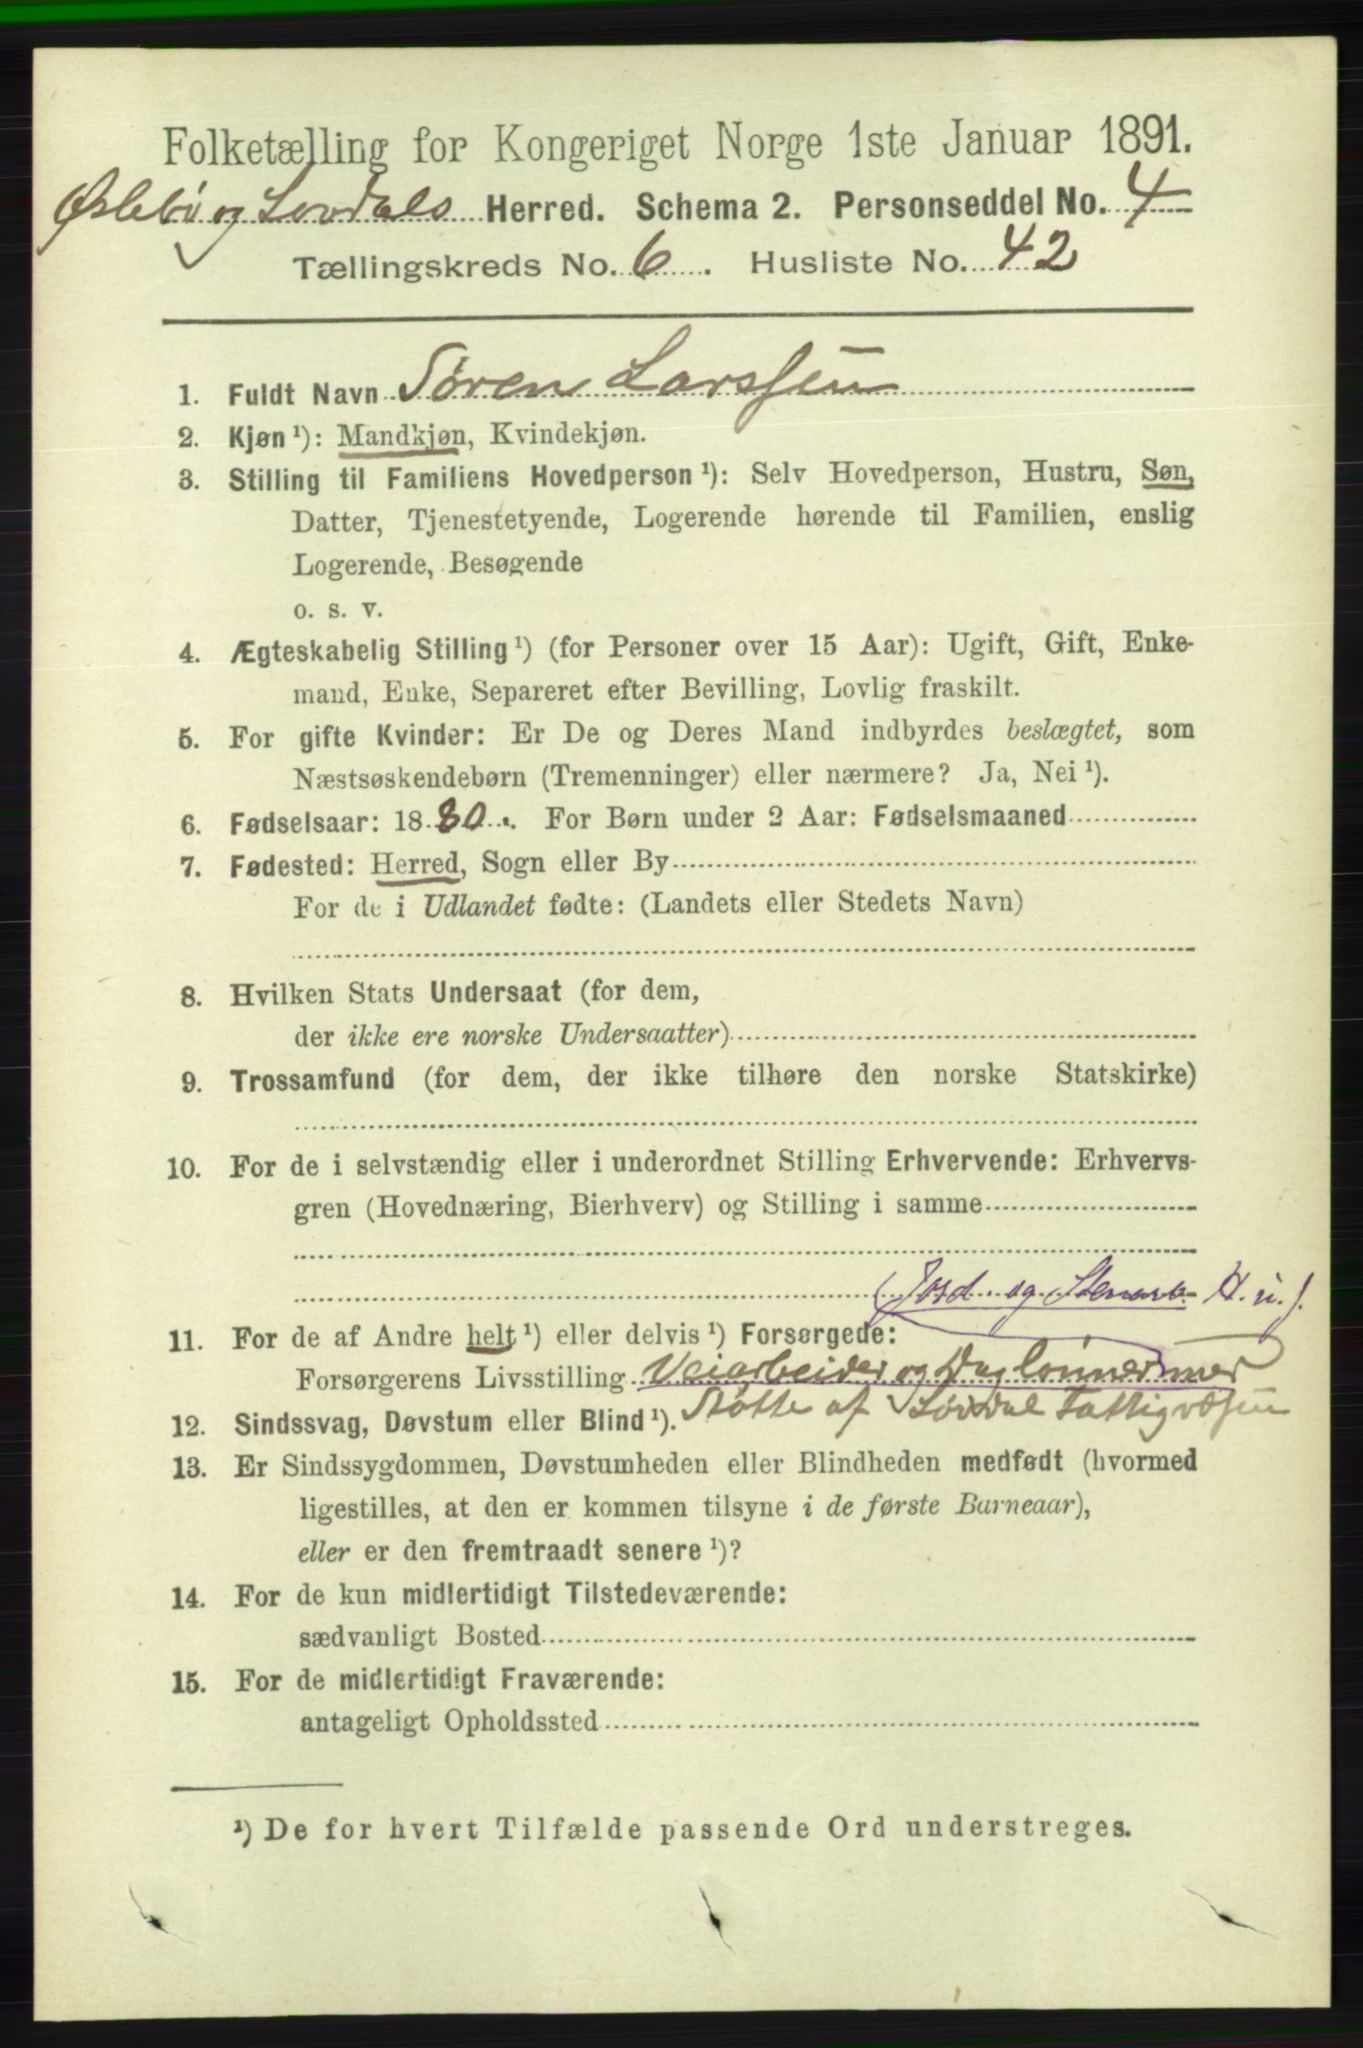 Folketælling for Kongeriget Norge 1ste Januar 1891.
Øslebø og Løvdals Herred. Schema 2. Personseddel No. 4
Tællingskreds No. 6. Husliste No. 42
1. Fuldt Navn Søren Larssen
2. Kjøn ¹): Mandkjøn, Kvindekjøn.
3. Stilling til Familiens Hovedperson ¹): Selv Hovedperson, Hustru, Søn,
Datter, Tjenestetyende, Logerende hørende til Familien, enslig
Logerende, Besøgende
o. s. v.
4. Ægteskabelig Stilling ¹) (for Personer over 15 Aar): Ugift, Gift, Enke-
mand, Enke, Separeret efter Bevilling, Lovlig fraskilt.
5. For gifte Kvinder: Er De og Deres Mand indbyrdes beslægtet, som
Næstsøskendebørn (Tremenninger) eller nærmere? Ja, Nei ¹).
6. Fødselsaar: 1880. For Børn under 2 Aar: Fødselsmaaned
7. Fødested: Herred, Sogn eller By
For de i Udlandet fødte: (Landets eller Stedets Navn)
8. Hvilken Stats Undersaat (for dem,
der ikke ere norske Undersaatter)
9. Trossamfund (for dem, der ikke tilhøre den norske Statskirke)
10. For de i selvstændig eller i underordnet Stilling Erhvervende: Erhvervs-
gren (Hovednæring, Bierhverv) og Stilling i samme
(Jord og Stenarb. H. u.).
11. For de af Andre helt ¹) eller delvis ¹) Forsørgede:
Forsørgerens Livsstilling Veiarbeider og Daglønner mer
Støtte af Løvdal Fattigvæsen
12. Sindssvag, Døvstum eller Blind ¹).
13. Er Sindssygdommen, Døvstumheden eller Blindheden medfødt (hvormed
ligestilles, at den er kommen tilsyne i de første Barneaar),
eller er den fremtraadt senere ¹)?
14. For de kun midlertidigt Tilstedeværende:
sædvanligt Bosted
15. For de midlertidigt Fraværende:
antageligt Opholdssted
¹) De for hvert Tilfælde passende Ord understreges.